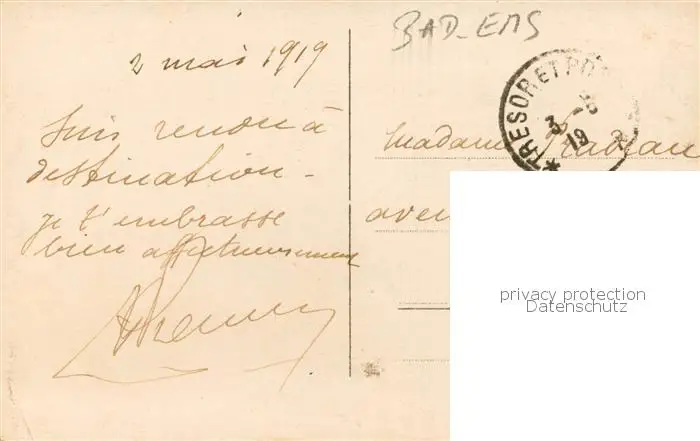 BAD-EMS
2 mai 1919
TRESOR ET PO
3 -5
19
Suis rendu à
destination -
je t'embrasse
bien affectueusement
Madame
aven
privacy protection
Datenschutz